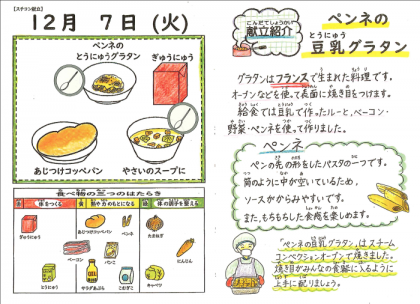 【スチコン献立】
12月 7日 (火)
ペンネの
とうにゅうグラタン
ぎゅうにゅう
あじつけコッペパン
やさいのスープに
食べ物の三つのはたらき
赤 体をつくる
黄 熱や力のもとになる
緑 体の調子を整える
ぎゅうにゅう
あじつけコッペパン
ペンネ
たまねぎ
ベーコン
パンこ
にんじん
とうにゅう
サラダあぶら
こむぎこ
キャベツ
こんだてしょうかい
献立紹介
ペンネの
とうにゅう
豆乳グラタン
グラタンはフランスで生まれた料理です。
オーブンなどを使って表面に焼き目をつけます。
給食では豆乳で作ったルーと、ベーコン・
野菜・ペンネを使って作りました。
ペンネ
ペンの先の形をしたパスタの一つです。
筒のように中が空いているため、
ソースがからみやすいです。
また、もちもちした食感を楽しめます。
"ペンネの豆乳グラタン"はスチーム
コンベクションオーブンで焼きました。
焼き目がみんなの食器に入るように
上手に配りましょう。